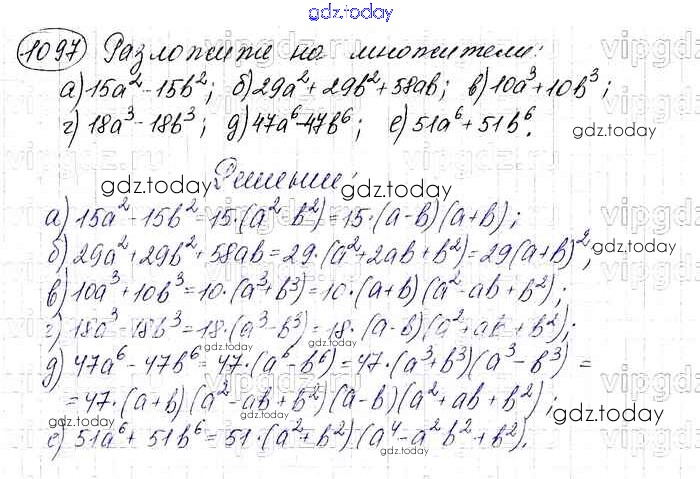 gdz.today
1097 Разложите на множители:
а) 15a² - 15b²; б) 29a² + 29b² + 58ab; в) 10a³ + 10b³;
г) 18a³ - 18b³; д) 47a⁶ - 47b⁶; е) 51a⁶ + 51b⁶.
gdz.today
Решение:
gdz.today gdz.today
а) 15a² - 15b² = 15·(a² - b²) = 15·(a-b)(a+b);
б) 29a² + 29b² + 58ab = 29·(a² + 2ab + b²) = 29(a+b)²;
gdz.today
в) 10a³ + 10b³ = 10·(a³ + b³) = 10·(a+b)(a² - ab + b²);
г) 18a³ - 18b³ = 18·(a³ - b³) = 18·(a-b)(a² + ab + b²);
gdz.today gdz.today
д) 47a⁶ - 47b⁶ = 47·(a⁶ - b⁶) = 47·(a³ + b³)(a³ - b³) =
= 47·(a+b)(a² - ab + b²)(a-b)(a² + ab + b²);
gdz.today gdz.today
е) 51a⁶ + 51b⁶ = 51·(a² + b²)(a⁴ - a²b² + b²).
gdz.today